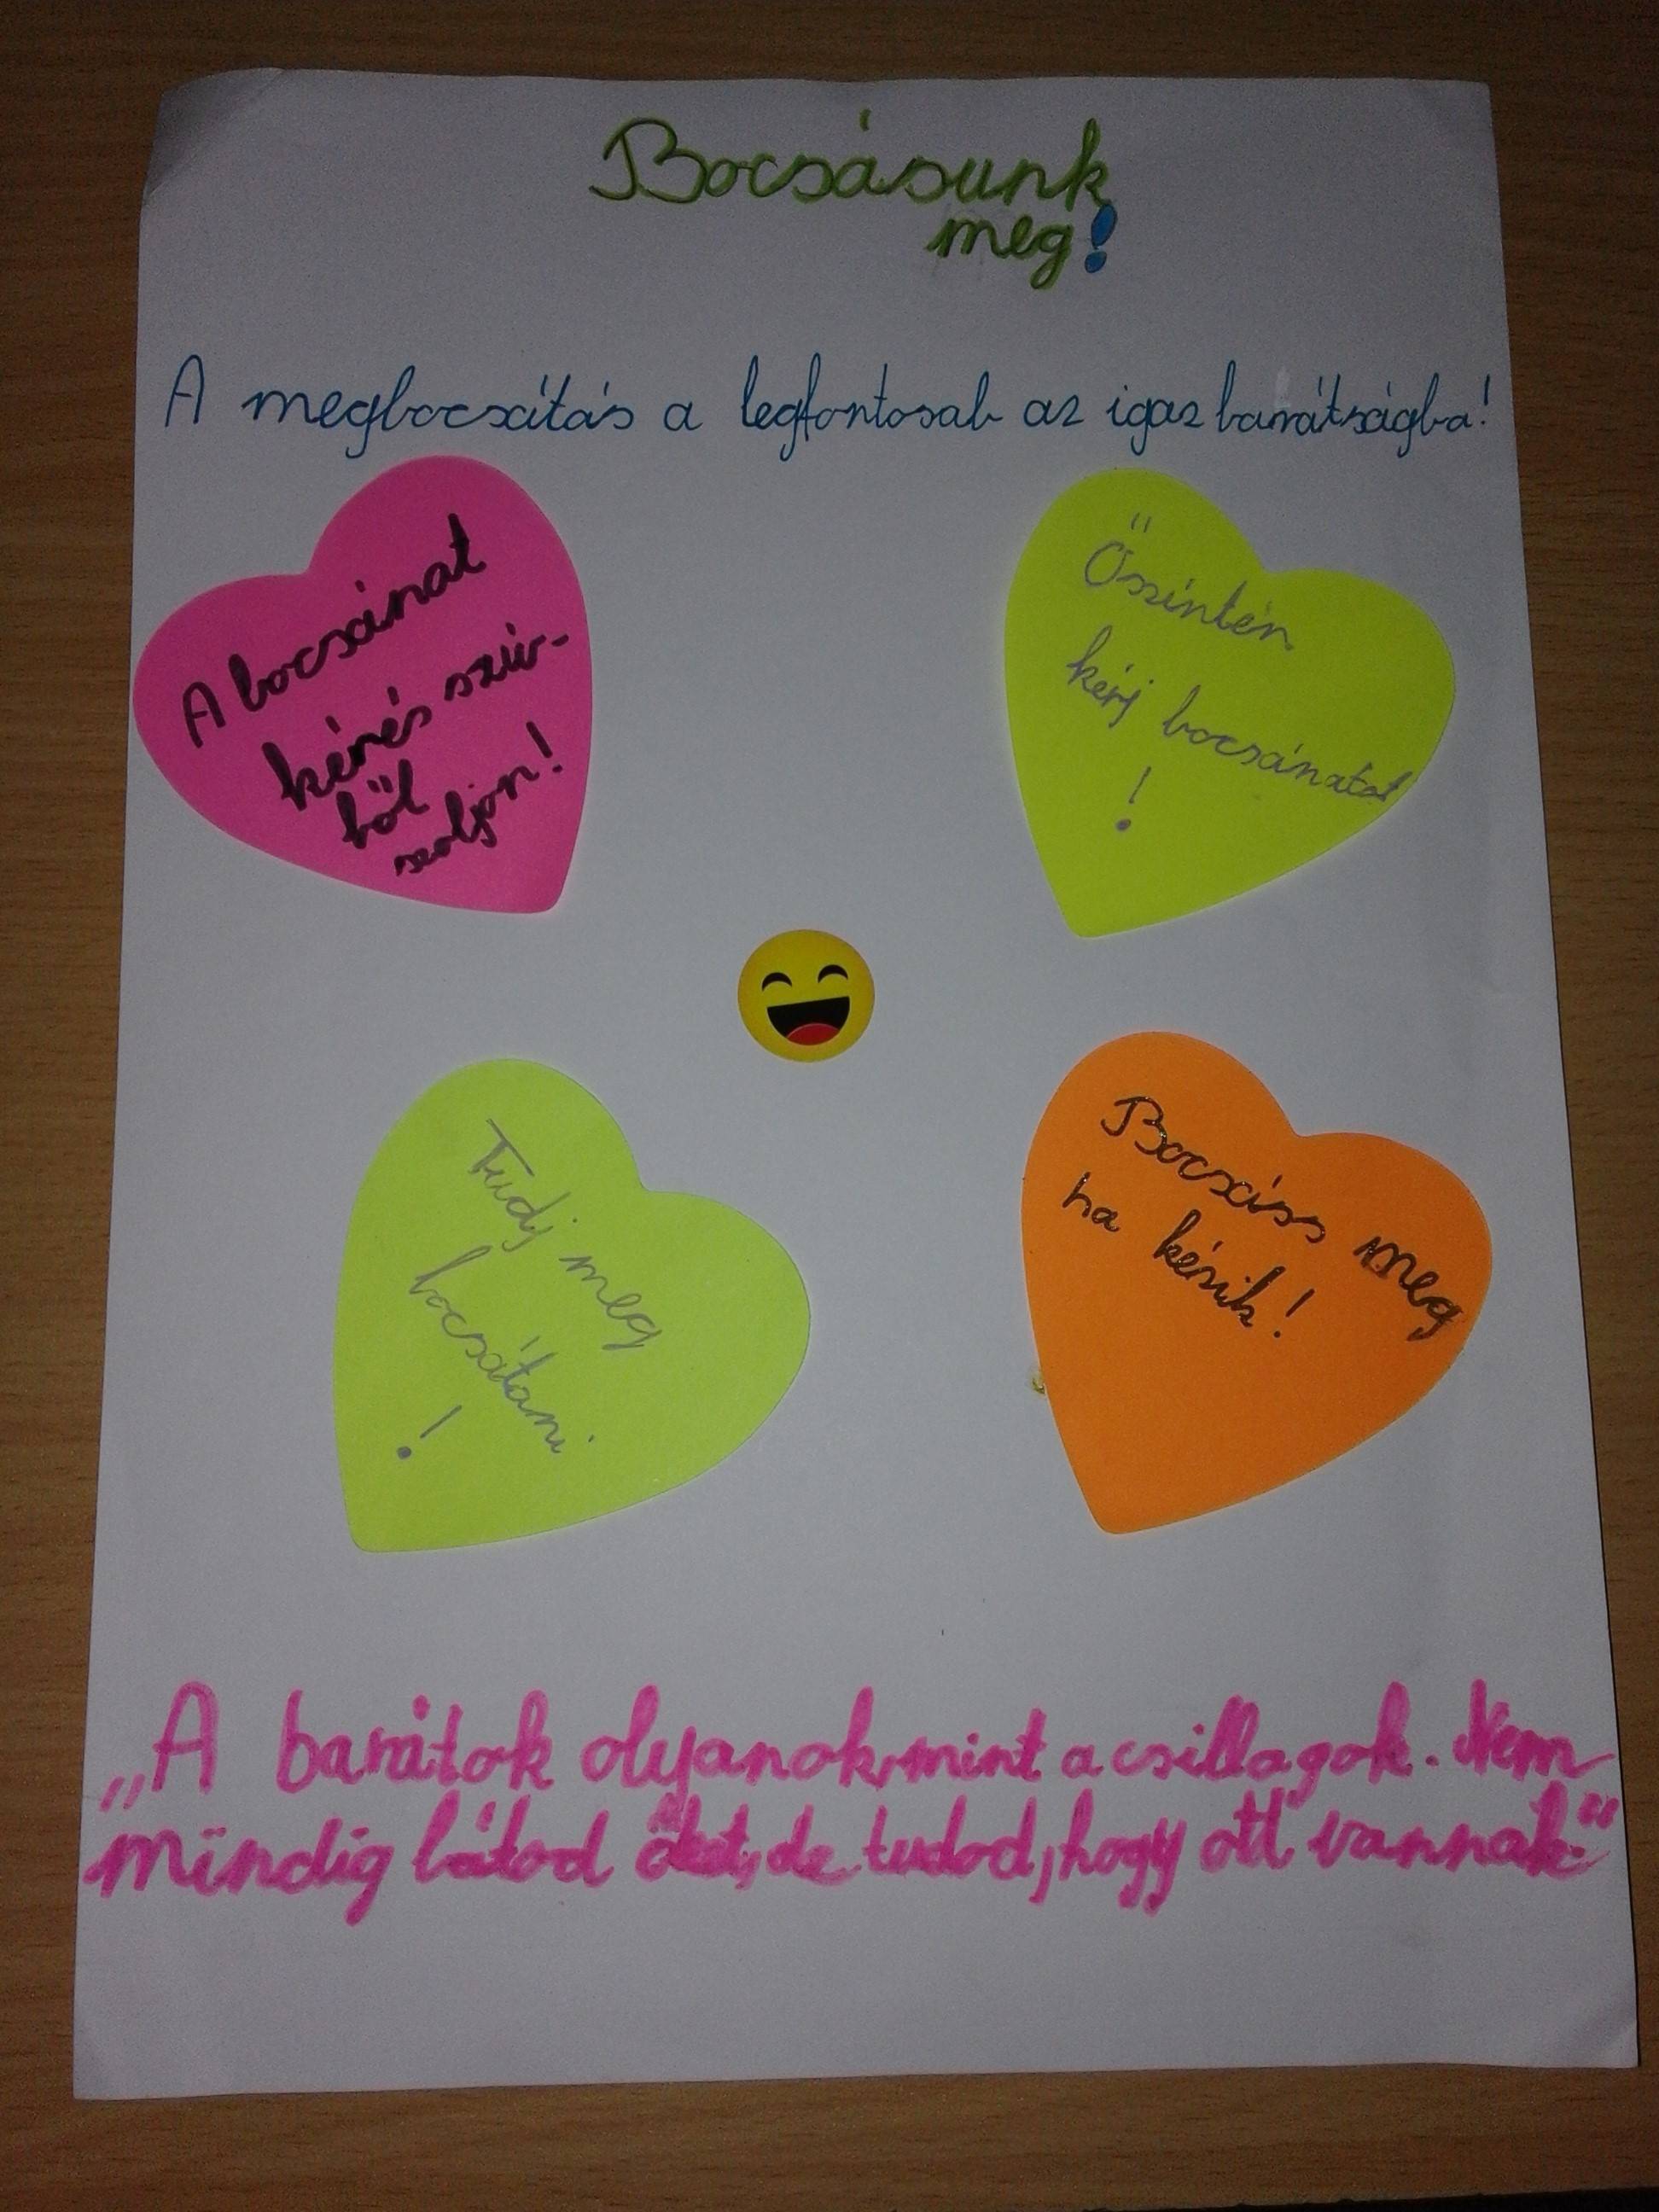 Bocsásunk
meg!
A megbocsátás a legfontosab az igaz barátságba!
A bocsánat
kérés szív-
ből
szoljon!
Őszintén
kérj bocsánatot
!
Tudj meg
bocsátani
!
Bocsáss meg
ha kérik!
„A barátok olyanok, mint a csillagok. Nem
mindig látod őket, de tudod, hogy ott vannak."